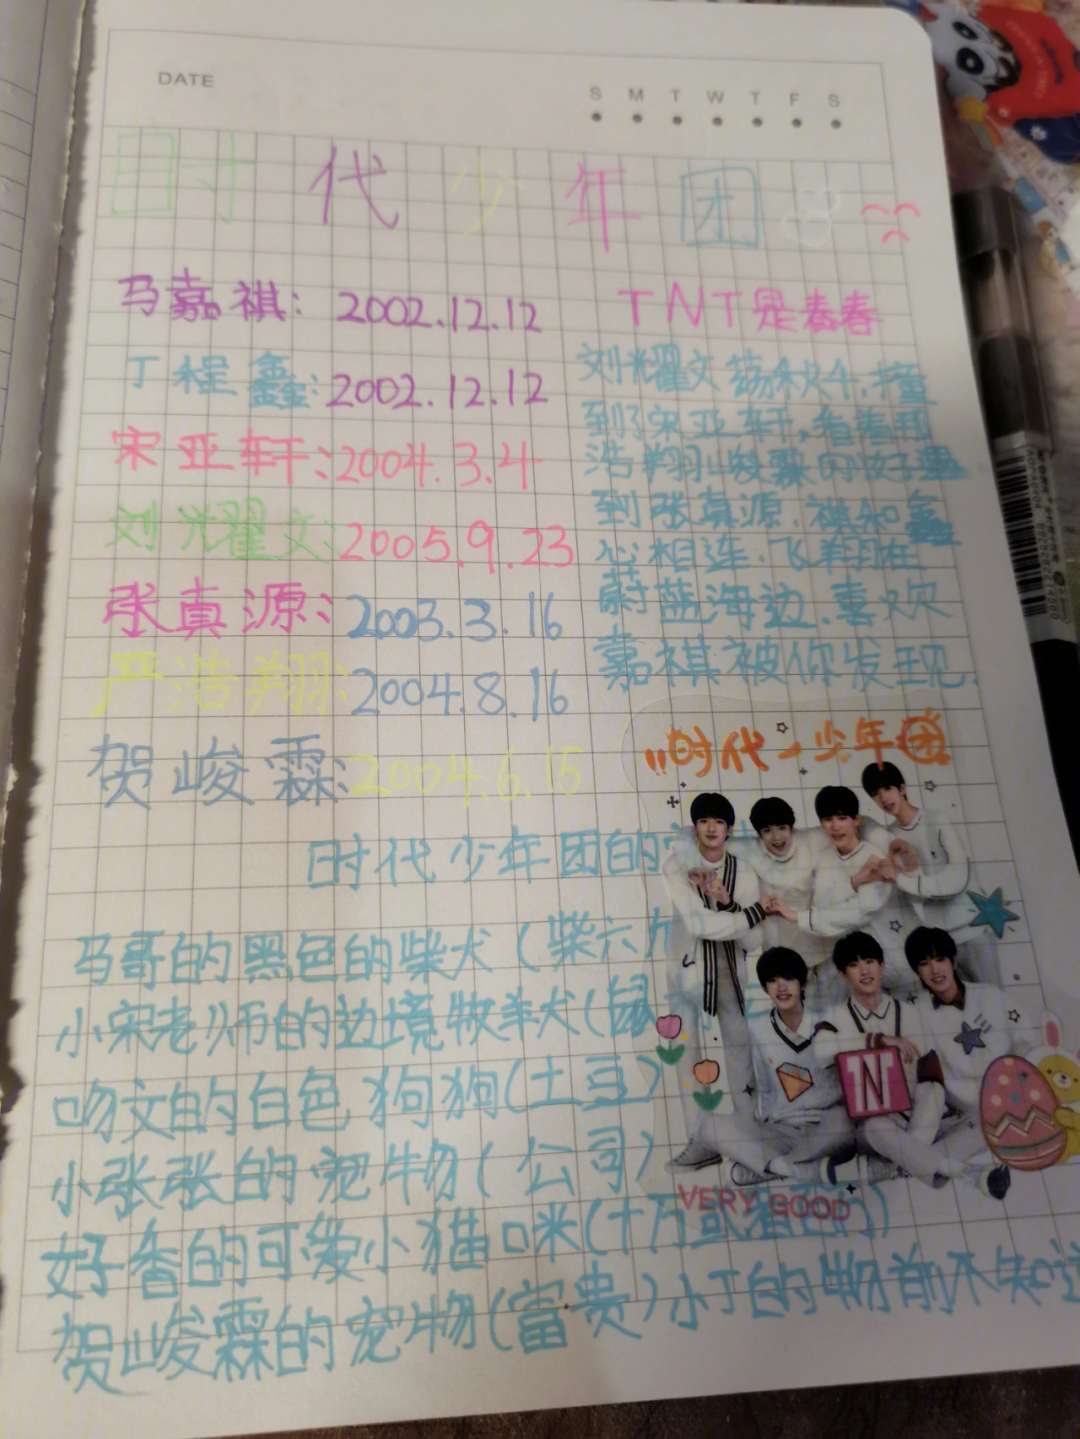 DATE
S M T W T F S
时代少年团
马嘉祺：2002.12.12
丁程鑫：2002.12.12
宋亚轩：2004.3.4
刘耀文：2005.9.23
张真源：2003.3.16
严浩翔：2004.8.16
贺峻霖：2004.6.15
TNT是春春
刘耀文荡秋千，撞
到了宋亚轩，看着用
浩翔峻霖的好遇
到张真源.祺和鑫
心相连.飞翔在
蔚蓝海边.喜欢
嘉祺被你发现.
时代少年团
时代少年团的
马哥的黑色的柴犬（柴六
小宋老师的边境牧羊犬（
吻文的白色狗狗（土豆）
小张张的宠物（公司）
好香的可爱小猫咪（十万
贺峻霖的宠物（富贵）小丁的物前不知
N
VERY GOOD